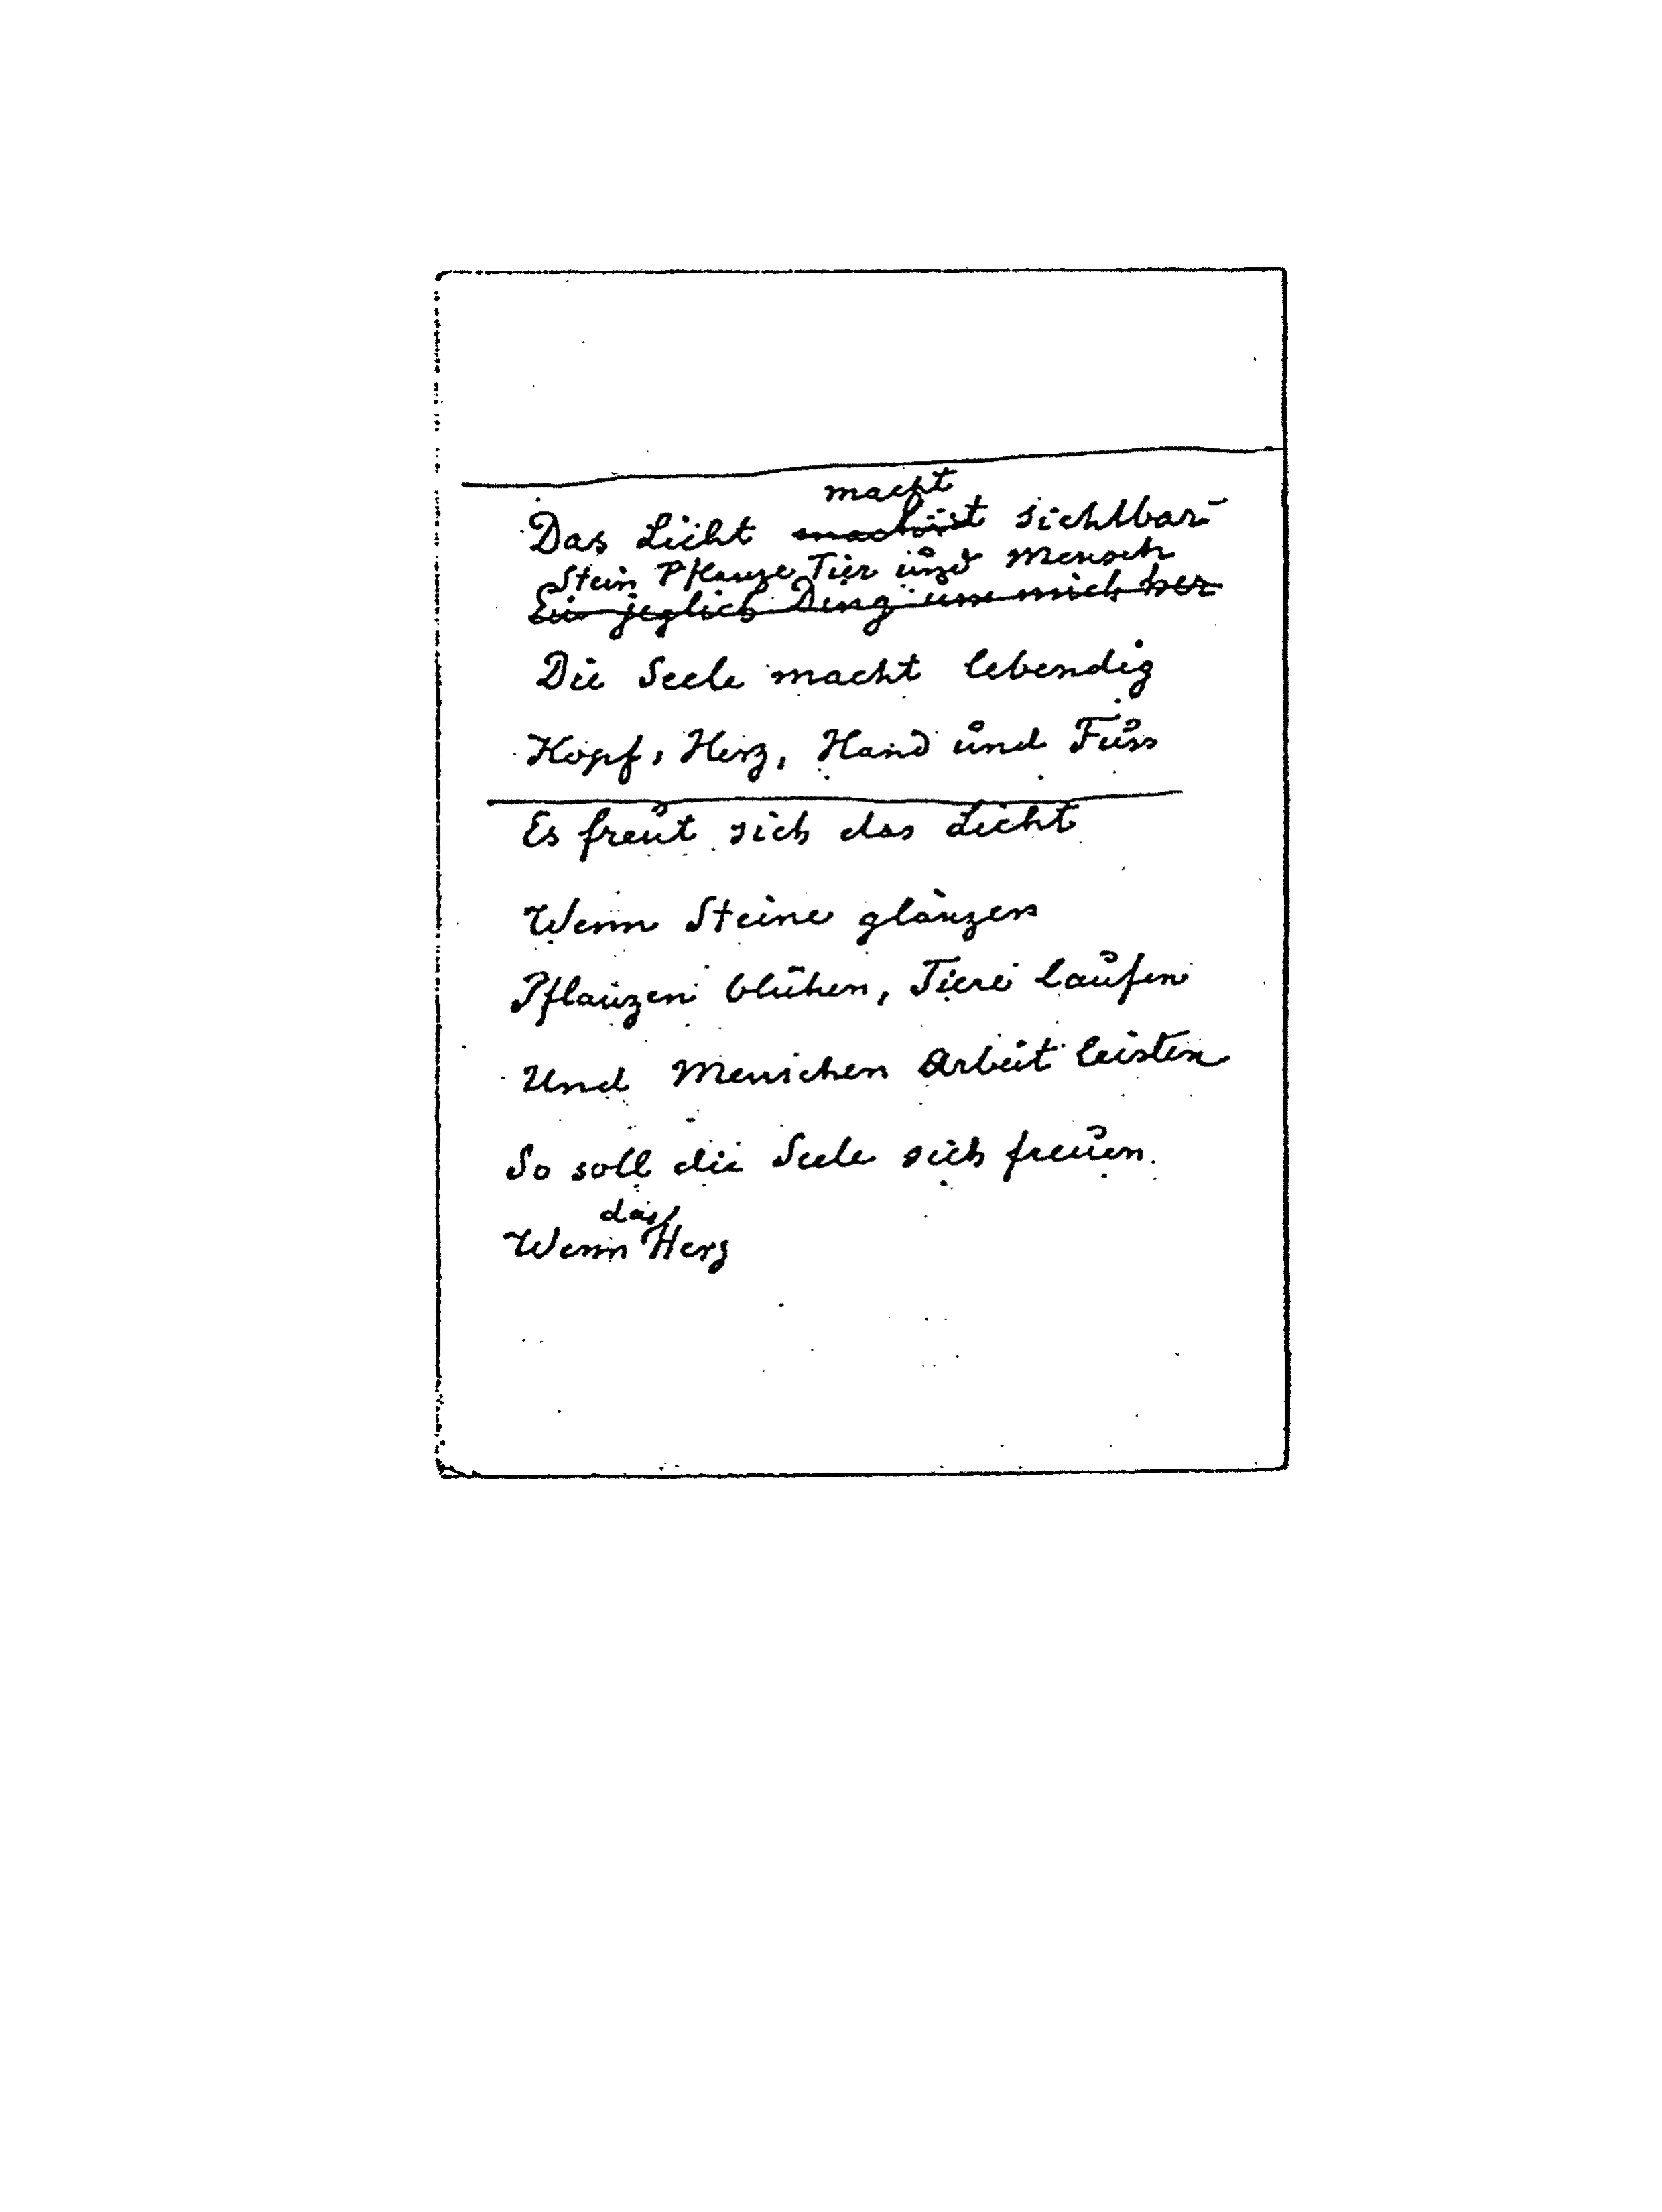 macht
Das Licht macht ist sichtbar
Stein Pflanze Tier und Mensch
Ein jeglich Ding um mich her
Die Seele macht lebendig
Kopf, Herz, Hand und Fuss
Es freut sich das Licht
Wenn Steine glänzen
Pflanzen blühen, Tiere laufen
Und Menschen Arbeit leisten
So soll die Seele sich freuen.
das
Wenn Herz